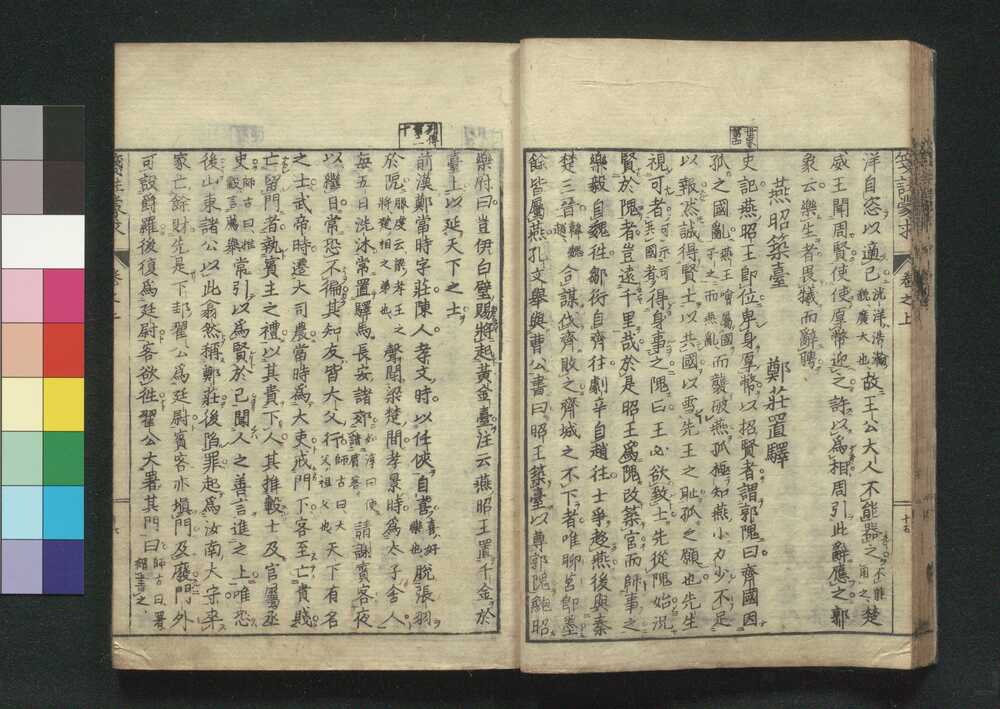 世家第四
洋自恣以適己洸洋浩瀚貌廣大也故王公大人不能器之不能用之楚
威王聞周賢使使厚幣迎之許以為相周引此辭應之郭
象云樂生者畏犧而辭聘
燕昭築臺 鄭莊置驛
史記燕昭王即位卑身厚幣以招賢者謂郭隗曰齊國因
孤之國亂而襲破燕孤極知燕小力少不足
以報然誠得賢士以共國以雪先王之恥孤之願也先生
視可者得身事之隗曰王必欲致士先從隗始況
賢於隗者豈遠千里哉於是昭王為隗改築宮而師事之
樂毅自魏徃鄒衍自齊徃劇辛自趙徃士爭趨燕後與秦
楚三晉韓魏趙合謀伐齊敗之齊城之不下者唯聊莒即墨
餘皆屬燕孔文舉與曹公書曰昭王築臺以尊郭隗鮑昭
列傳第二十
樂府曰豈伊白璧賜將起黃金臺注云燕昭王置千金於
臺上以延天下之士
前漢鄭當時字莊陳人孝文時以任俠自喜喜好樂也脫張羽
於阨服虔云梁孝王之將楚相之弟也聲聞梁楚間孝景時為太子舍人
每五日洗沐常置驛馬長安諸郊請謝賓客夜
以繼日常恐不徧其知友皆大父行師古曰大父祖父也天下有名
之士武帝時遷大司農當時為大吏戒門下客至亡貴賤
亡留門者執賓主之禮以其貴下人其推轂士及官屬丞
史師古曰推轂言薦舉常引以為賢於己聞人之善言進之上唯恐
後山東諸公以此翕然稱鄭莊後陷罪起為汝南大守卒
家亡餘財先是下邽翟公為廷尉賓客亦塡門及廢門外
可設爵羅後復為廷尉客欲徃翟公大署其門曰師古曰署謂書之